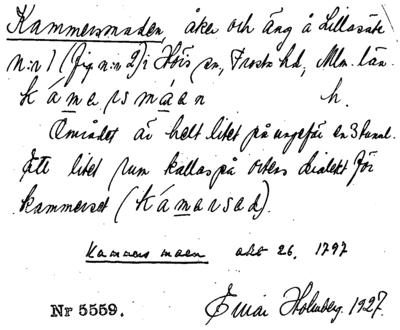 Kammersmaden, åker och äng å Lillasäte
n:r 1 (Fig n:r 2) i Hörs sn, Frosta hd, Mlm. län.
kámarsmáan h.
Området är helt litet på ungefär en 3 tunnl.
Ett litet rum kallas på ortens dialekt för
kammerset (kámarsad).
Kammers maen akt 26, 1797
Nr 5559. Einar Holmberg. 1927.